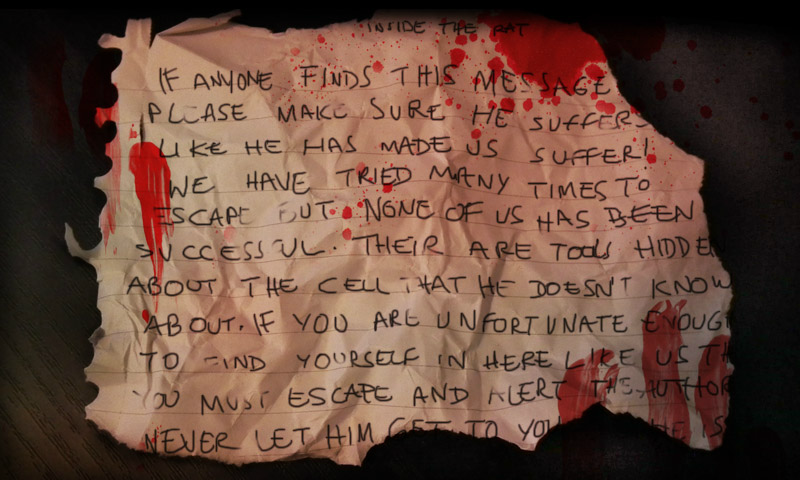 INSIDE THE RAT
IF ANYONE FINDS THIS MESSAGE
PLEASE MAKE SURE HE SUFFERS
LIKE HE HAS MADE US SUFFER!
WE HAVE TRIED MANY TIMES TO
ESCAPE BUT NONE OF US HAS BEEN
SUCCESSFUL. THEIR ARE TOOLS HIDDEN
ABOUT THE CELL THAT HE DOESN'T KNOW
ABOUT. IF YOU ARE UNFORTUNATE ENOUGH
TO FIND YOURSELF IN HERE LIKE US TH
YOU MUST ESCAPE AND ALERT THE AUTHOR
NEVER LET HIM GET TO YOU HE IS